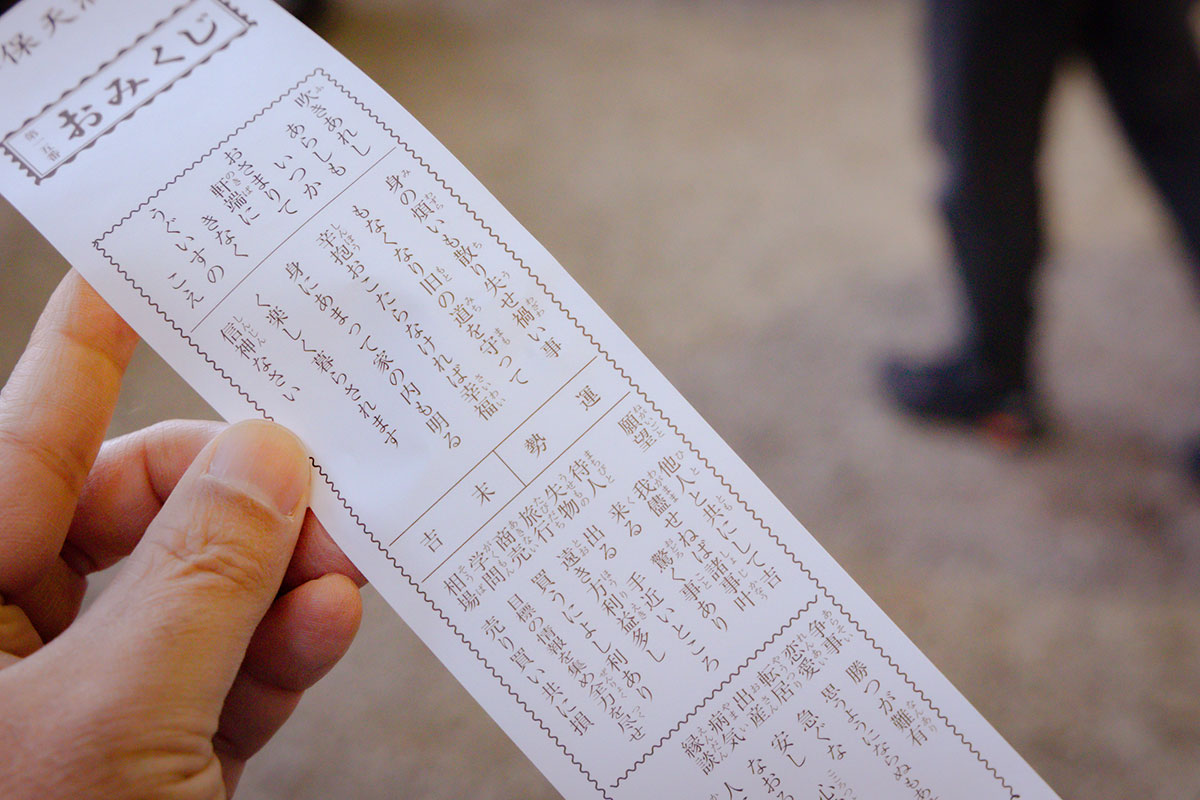 保天
おみくじ
吹きあれし
あらしも
いつか
おさまりて
軒端に
きなく
うぐいすの こえ
身の煩いも散り失せ禍い事
もなくなり旧の道を守って
辛抱おこたらなければ幸福
身にあまって家の内も明る
く楽しく暮らされます
信神なさい
運勢
末吉
願望 他人と共にして吉
我儘せねば諸事叶
待人 来る 驚く事あり
失物 出る 手近いところ
旅行 遠き方利益多し
商売 買うによし 利あり
学問 目標の情報を集め全力を尽せ
相場 売り買い共に損
争事 勝つが難有
恋愛 思うようにならぬもあ
転居 急ぐな
出産 安し 心
病気 なおる
縁談 人